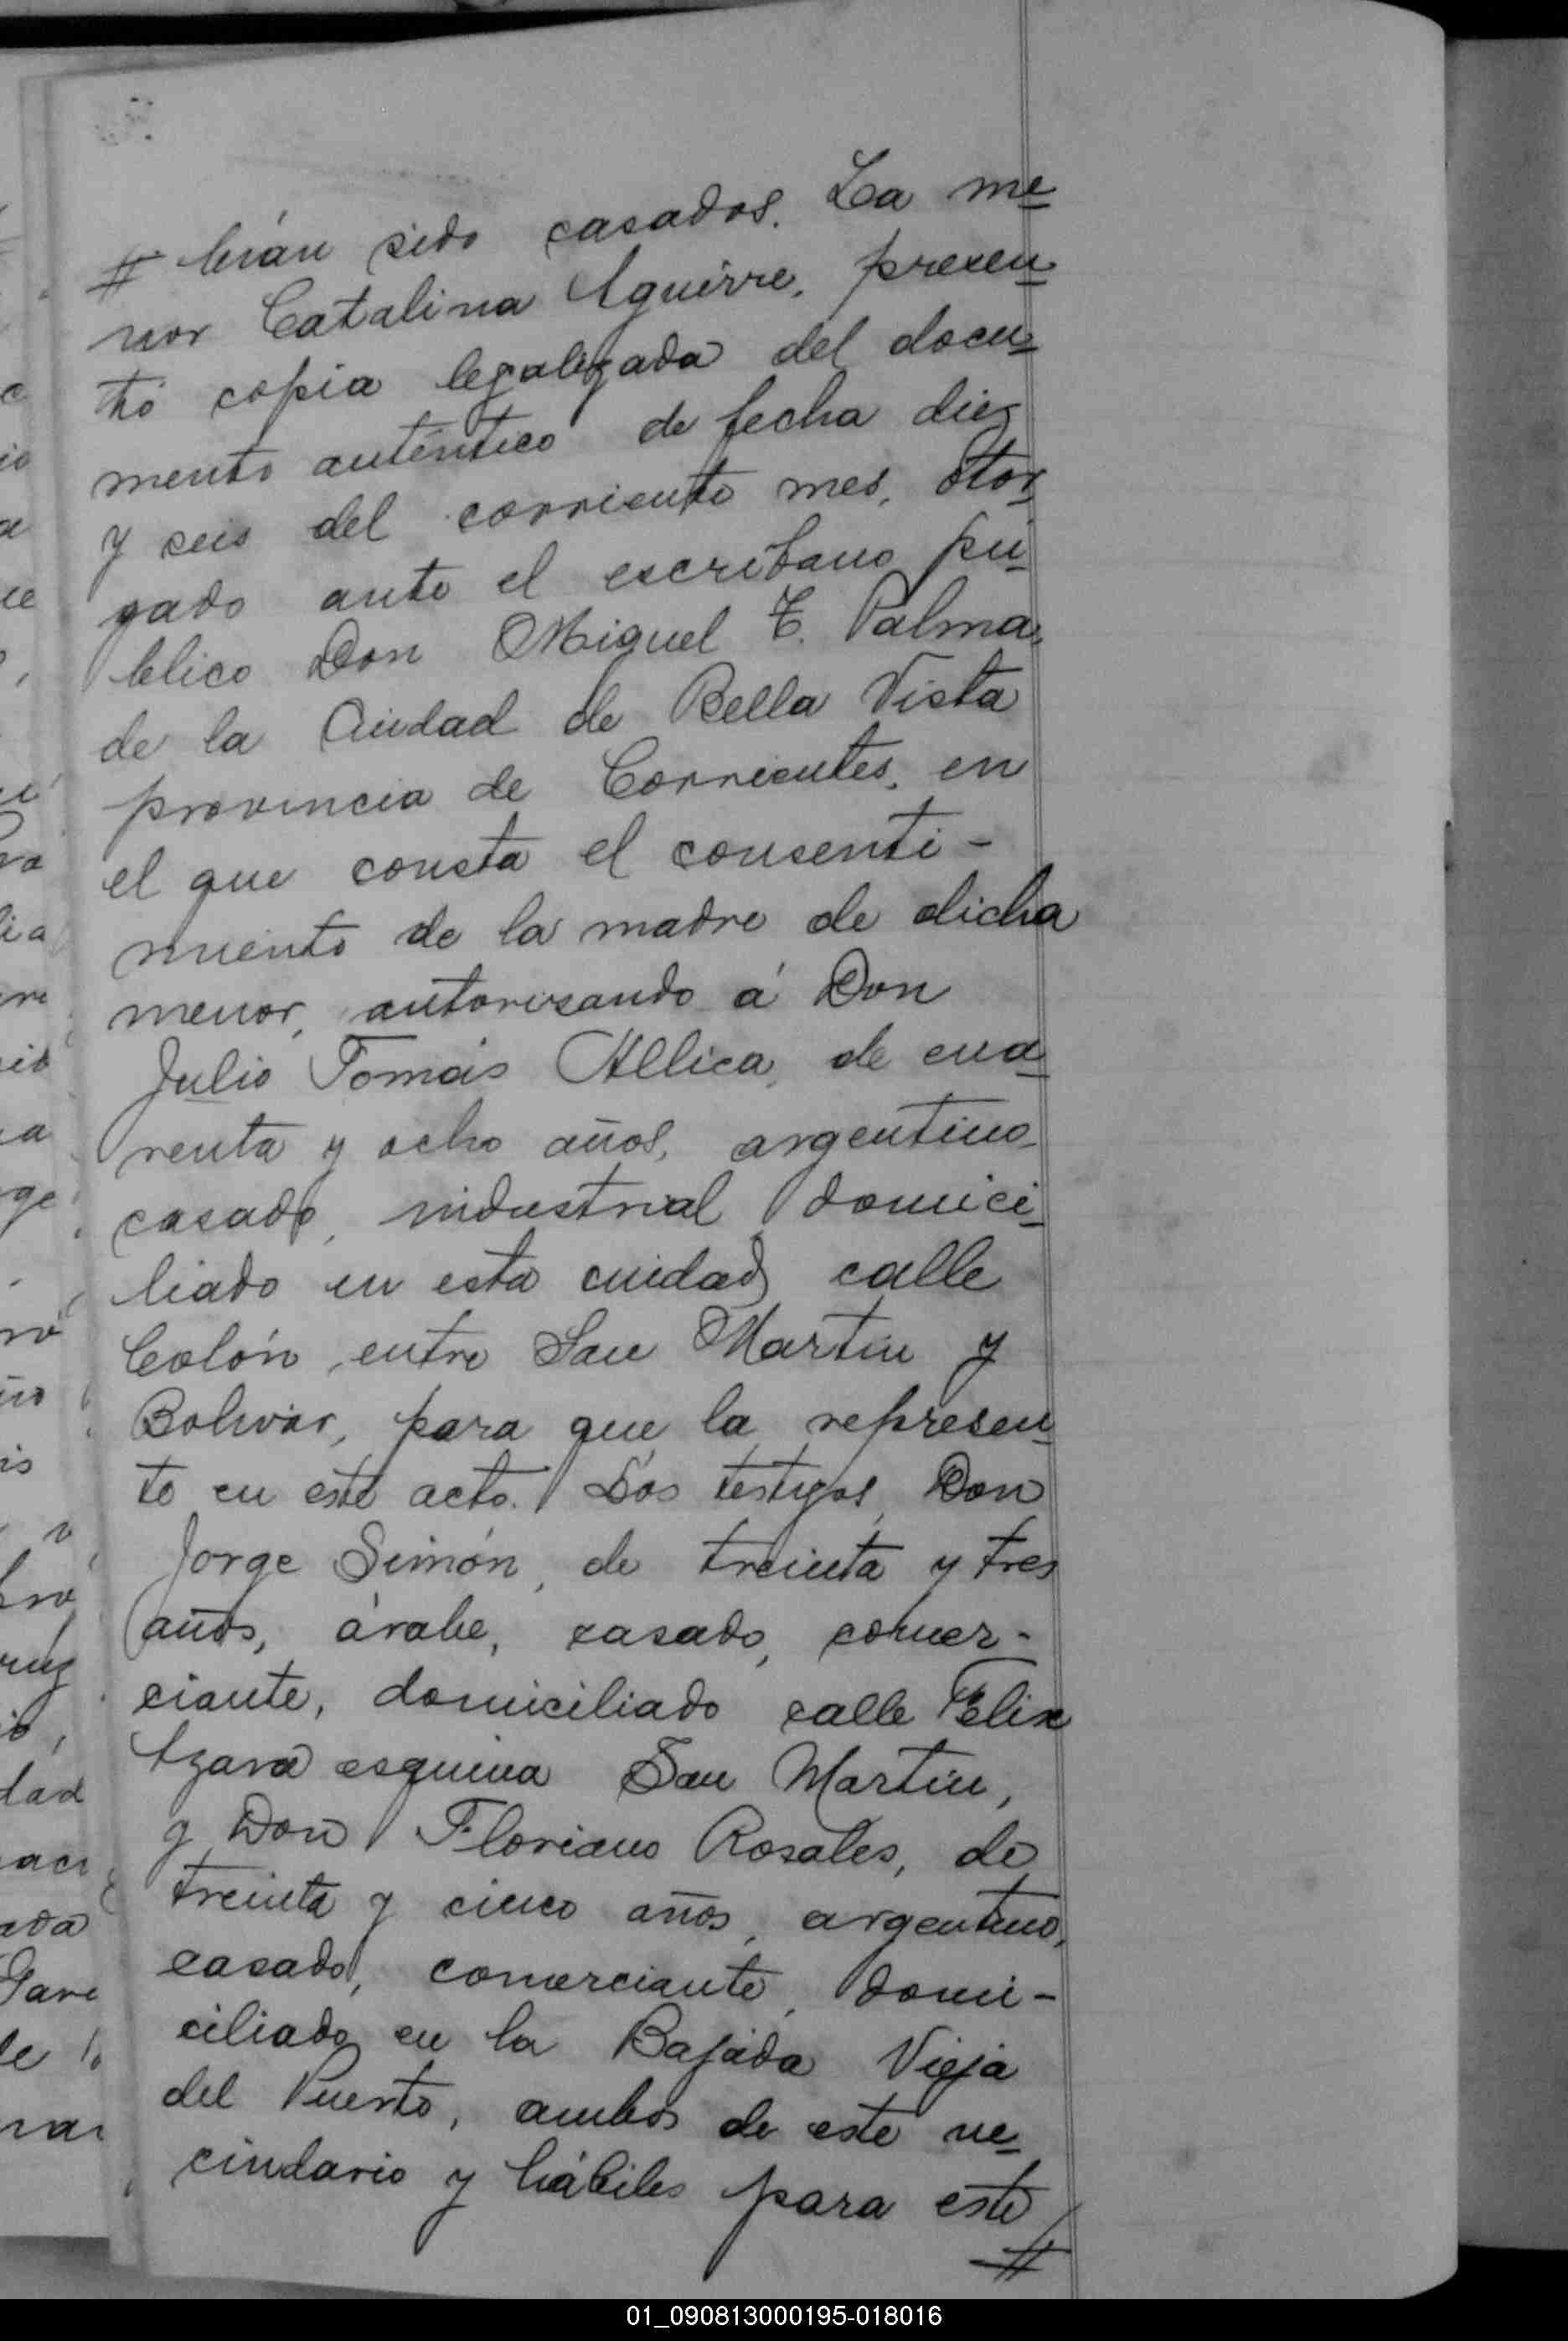 # brán sido casados. La me=
nor Catalina Aguirre, presen=
tó copia legalizada del docu=
mento auténtico de fecha diez
y seis del corriente mes, otor=
gado ante el escribano pú=
blico Don Miguel T. Palma,
de la Ciudad de Bella Vista
provincia de Corrientes, en
el que consta el consenti-
miento de la madre de dicha
menor, autorisando á Don
Julio Tomás Allica, de cua=
renta y ocho años, argentino
casado, industrial, domici=
liado en esta ciudad calle
Colón entre San Martin y
Bolivar, para que la represen=
te en este acto. Los testigos, Don
Jorge Simón, de treinta y tres
años, árabe, casado, comer-
ciante, domiciliado calle Felix
Azara esquina San Martin,
y Don Floriano Rosales, de
treinta y cinco años, argentino,
casado, comerciante, domi-
ciliado en la Bajada Vieja
del Puerto, ambos de este ve=
cindario y hábiles para este
#
01_090813000195-018016